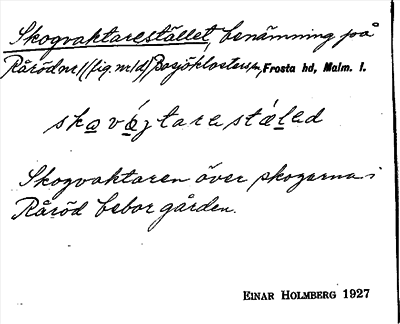 Skogvaktarestället, benämning på
Råröd nr 1 (fig. nr 1d) Bosjöklosters sn, Frosta hd, Malm. l.
Skogvaktaren över skogarna i
Råröd bebor gården.
EINAR HOLMBERG 1927